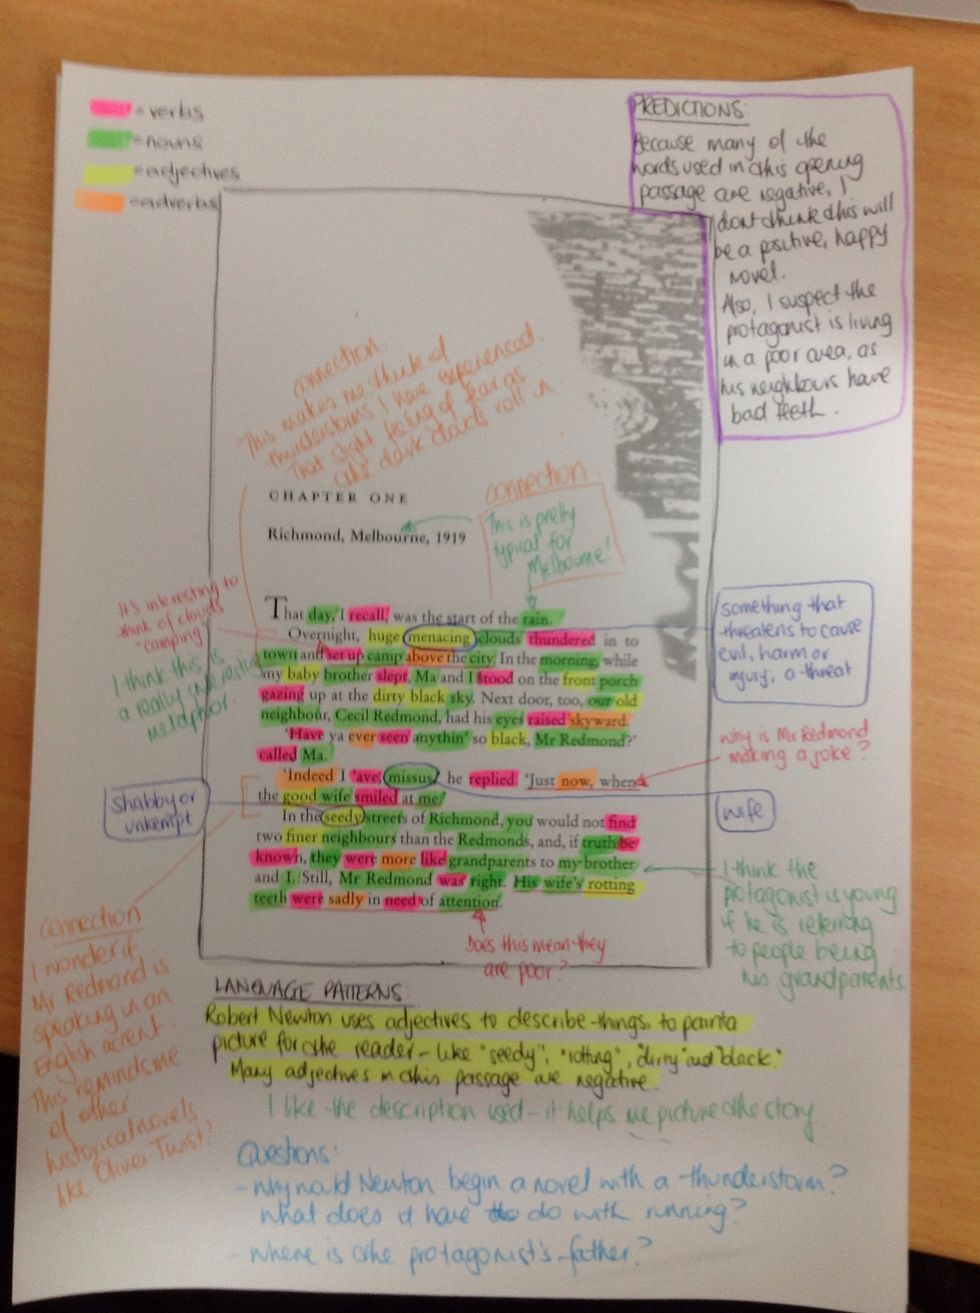 = verbs
= nouns
= adjectives
= adverbs
PREDICTIONS:
Because many of the
words used in this opening
passage are negative, I
dont think this will
be a positive, happy
novel.
Also, I suspect the
protagonist is living
in a poor area, as
his neighbours have
bad teeth.
connection
This makes me think of
thunderstorms I have experienced.
That slight feeling of fear as
the dark clouds roll in.
CHAPTER ONE
Richmond, Melbourne, 1919
connection.
This is pretty
typical for
Melbourne!
It's interesting to
think of clouds
"camping"
I think this is
a really
metaphor.
That day, I recall, was the start of the rain.
Overnight, huge menacing clouds thundered in to
town and set up camp above the city. In the morning, while
my baby brother slept, Ma and I stood on the front porch
gazing up at the dirty black sky. Next door, too, our old
neighbour, Cecil Redmond, had his eyes raised skyward.
'Have ya ever seen anythin' so black, Mr Redmond?'
called Ma.
'Indeed I 'ave, missus,' he replied. 'Just now, when
the good wife smiled at me.'
In the seedy streets of Richmond, you would not find
two finer neighbours than the Redmonds, and, if truth be
known, they were more like grandparents to my brother
and I. Still, Mr Redmond was right. His wife's rotting
teeth were sadly in need of attention.
something that
threatens to cause
evil, harm or
injury, a threat
why is Mr Redmond
making a joke?
shabby or
unkempt
wife
I think the
protagonist is young
if he is referring
to people being
his grandparents
Does this mean they
are poor?
connection
I wonder if
Mr Redmond is
speaking in an
English accent.
This reminds me
of other
historical novels
like 'Oliver Twist'
LANGUAGE PATTERNS:
Robert Newton uses adjectives to describe things, to paint a
picture for the reader - like "seedy", "rotting", "dirty" and "black."
Many adjectives in this passage are negative.
I like the description used - it helps me picture the story
Questions:
- why would Newton begin a novel with a thunderstorm?
what does it have to do with running?
- where is the protagonist's father?